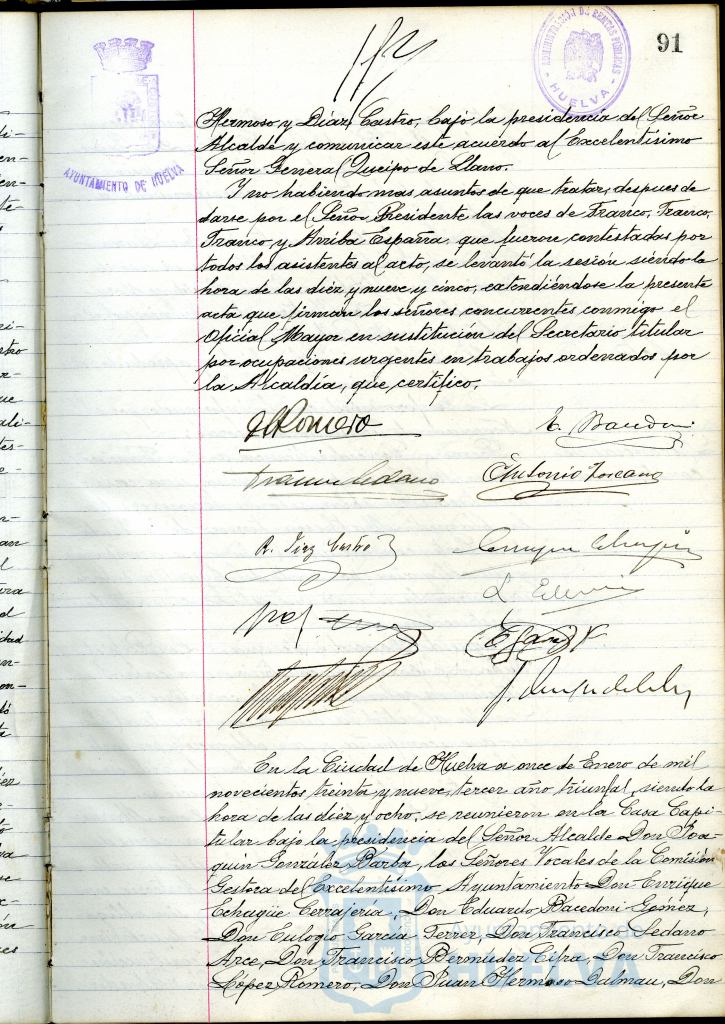 91
ADMINISTRACIÓN DE RENTAS PÚBLICAS
HUELVA
AYUNTAMIENTO DE HUELVA
Hermoso y Díaz Castro, bajo la presidencia del Señor
Alcalde y comunicar este acuerdo al Excelentísimo
Señor General Queipo de Llano.
Y no habiendo mas asuntos de que tratar, despues de
darse por el Señor Presidente las voces de Franco, Franco,
Franco, y Arriba España, que fueron contestadas por
todos los asistentes al acto, se levantó la sesión siendo la
hora de las diez y nueve y cinco, extendiéndose la presente
acta que firman los señores concurrentes conmigo el
Oficial Mayor en sustitución del Secretario titular
por ocupaciones urgentes en trabajos ordenados por
la Alcaldía, que certifico.
Romero
E. Bacedoni
Antonio Toscano
R. Diaz Castro
En la Ciudad de Huelva a once de Enero de mil
novecientos treinta y nueve, tercer año triunfal, siendo la
hora de las diez y ocho, se reunieron en la Casa Capi
tular bajo la presidencia del Señor Alcalde Don Joa-
quin González Barba, los Señores Vocales de la Comisión
Gestora del Excelentísimo Ayuntamiento Don Enrique
Echagüe Cerrajería, Don Eduardo Bacedoni Gómez,
Don Eulogio García Ferrer, Don Francisco Sedano
Arce, Don Francisco Bermudez Cifra, Don Francisco
López Romero, Don Juan Hermoso Dalmau, Don
HUELVA